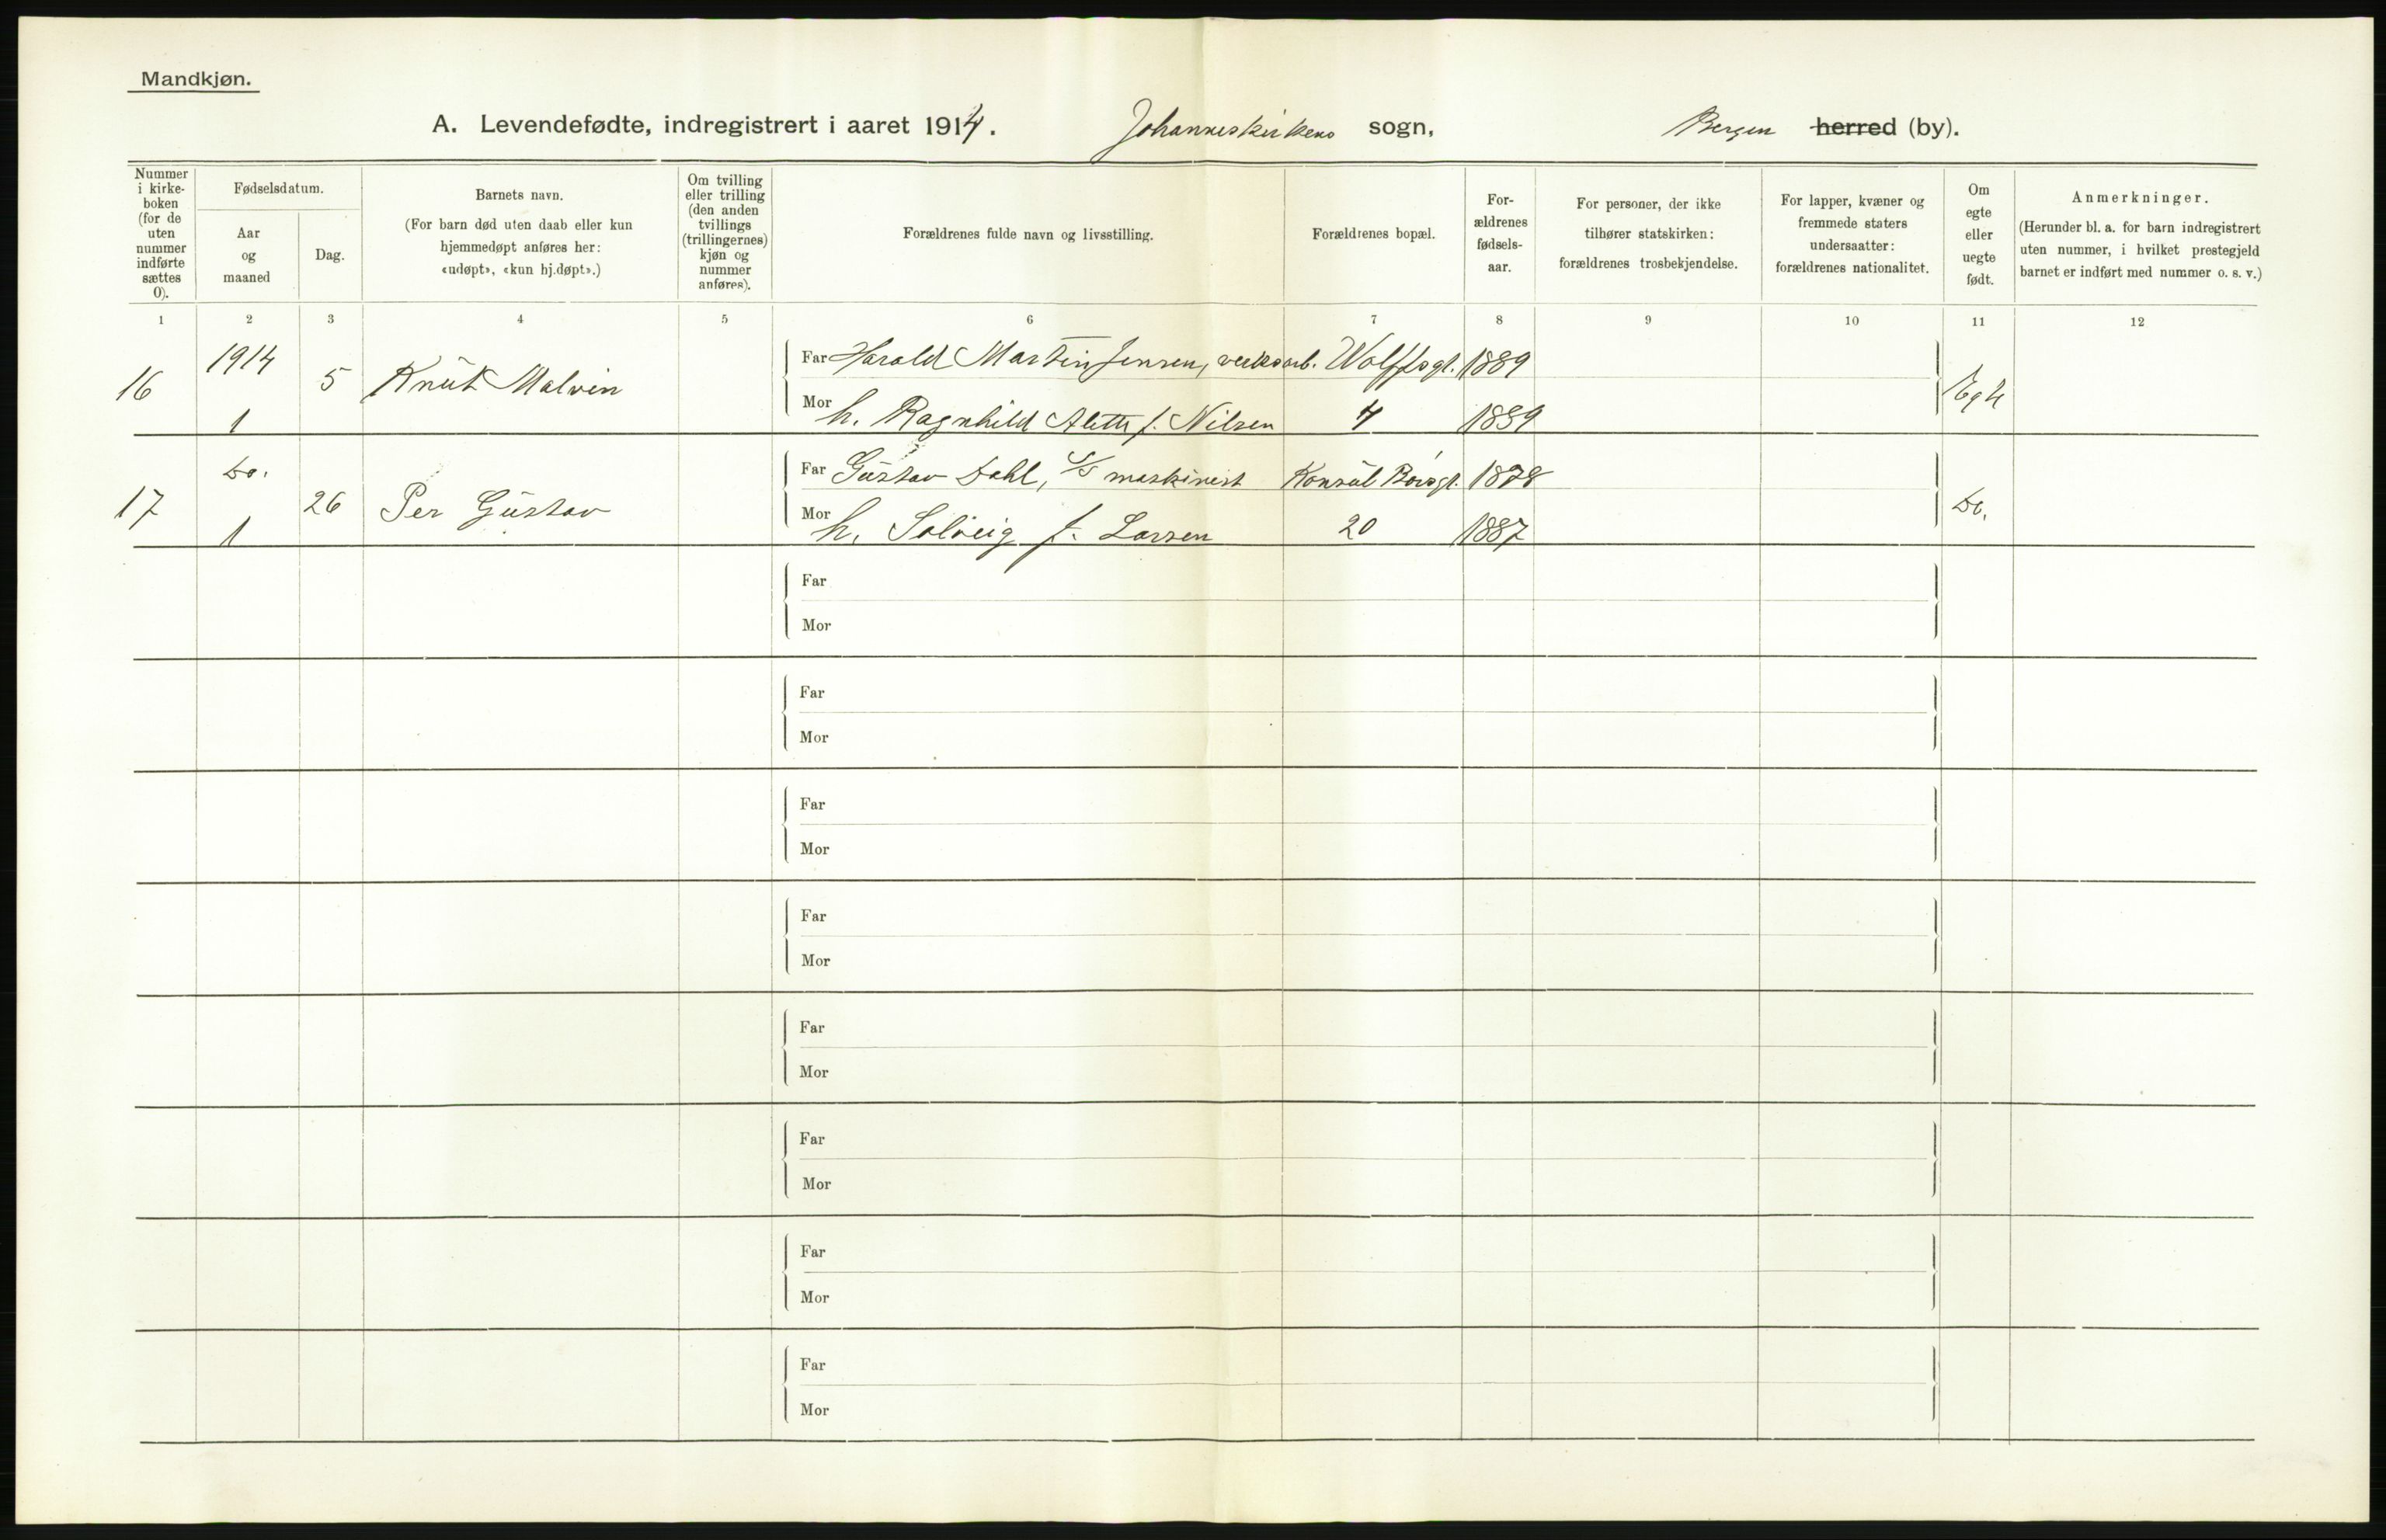 Mandkjøn.
A. Levendefødte, indregistrert i aaret 1914. Johanneskirkens sogn, Bergen herred (by).
Nummer i kirke-boken (for de uten nummer indførte sættes 0).
Fødselsdatum.
Aar og maaned
Dag.
Barnets navn.
(For barn død uten daab eller kun hjemmedøpt anføres her: «udøpt», «kun hj.døpt».)
Om tvilling eller trilling (den anden tvillings (trillingernes) kjøn og nummer anføres).
Forældrenes fulde navn og livsstilling.
Forældrenes bopæl.
For-ældrenes fødsels-aar.
For personer, der ikke tilhører statskirken: forældrenes trosbekjendelse.
For lapper, kvæner og fremmede staters undersaatter: forældrenes nationalitet.
Om egte eller uegte født.
Anmerkninger.
(Herunder bl. a. for barn indregistrert uten nummer, i hvilket prestegjeld barnet er indført med nummer o. s. v.)
1 2 3 4 5 6 7 8 9 10 11 12
16 1914 1 5 Knut Malvin Far Harald Martin Jensen, verksarb. Wolffsgt. 1889 Egte
Mor h. Ragnhild Alette f. Nilsen 4 1889
17 Do. 1 26 Per Gustav Far Gustav Dahl, S/S maskinist Konsul Børsgt. 1878 Do.
Mor h. Solveig f. Larsen 20 1887
Far
Mor
Far
Mor
Far
Mor
Far
Mor
Far
Mor
Far
Mor
Far
Mor
Far
Mor